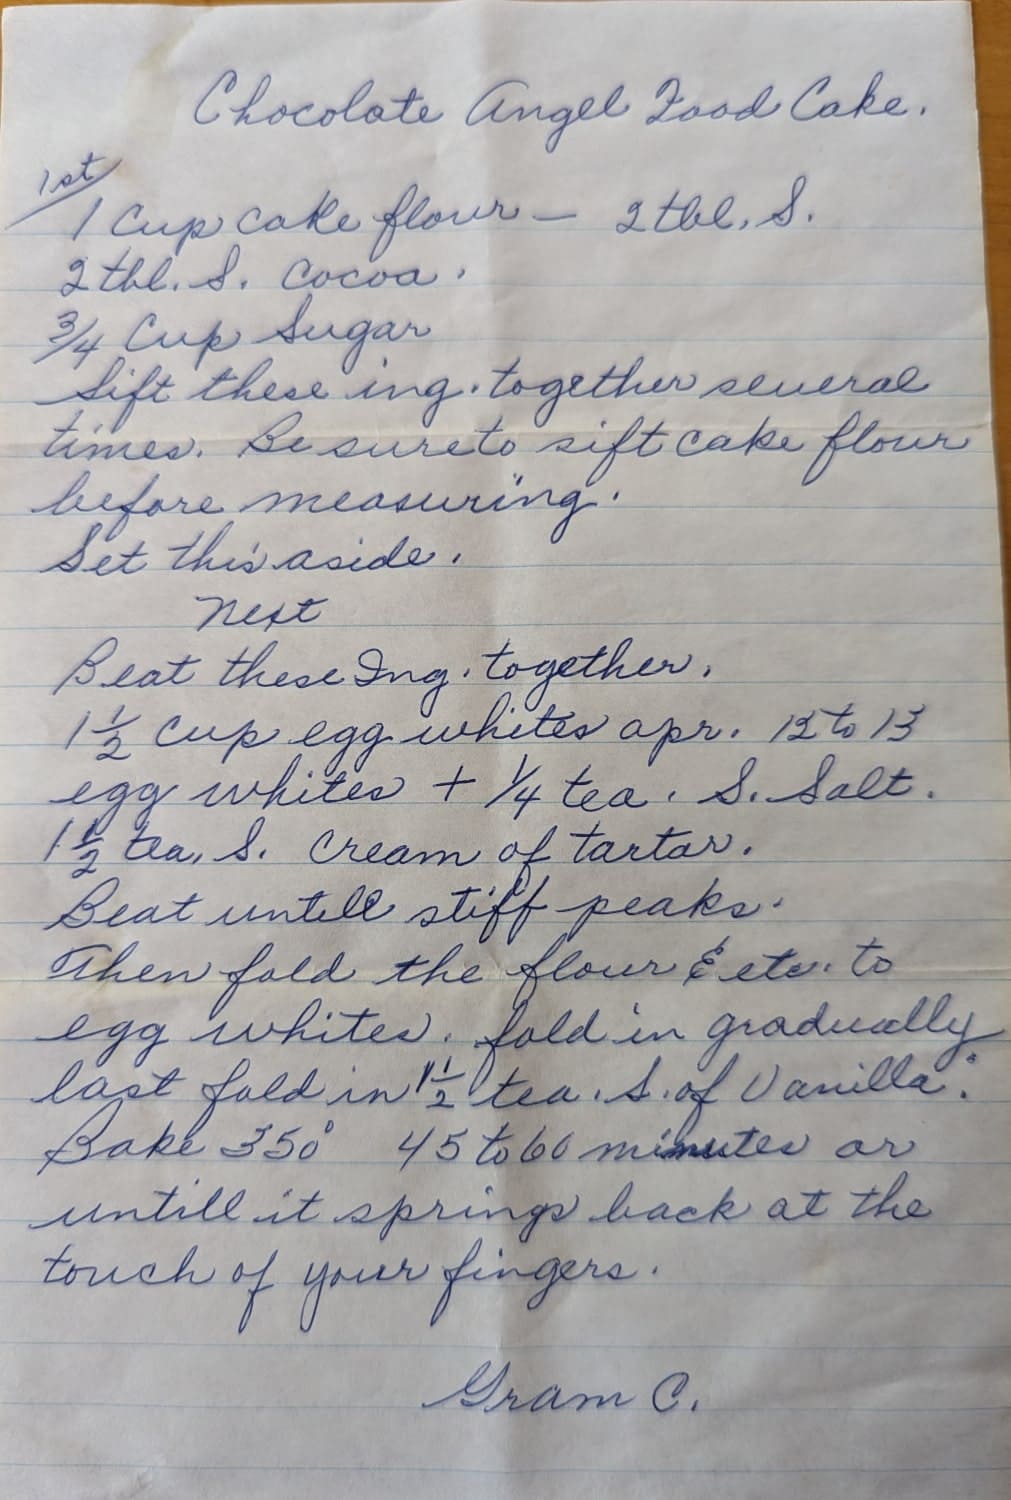 Chocolate Angel Food Cake.
1st
1 Cup cake flour — 2 tbl. S.
2 tbl. S. Cocoa.
3/4 Cup Sugar
Sift these ing. together several
times. Be sure to sift cake flour
before measuring.
Set this aside.
Next
Beat these Ing. together.
1 1/2 Cup egg whites apr. 12 to 13
egg whites + 1/4 tea. S. Salt.
1 1/2 tea. S. Cream of tartar.
Beat untill stiff peaks.
Then fold the flour & etc. to
egg whites. fold in gradually
last fold in 1 1/2 tea. S. of Vanilla.
Bake 350° 45 to 60 minutes or
untill it springs back at the
touch of your fingers.
Gram C.